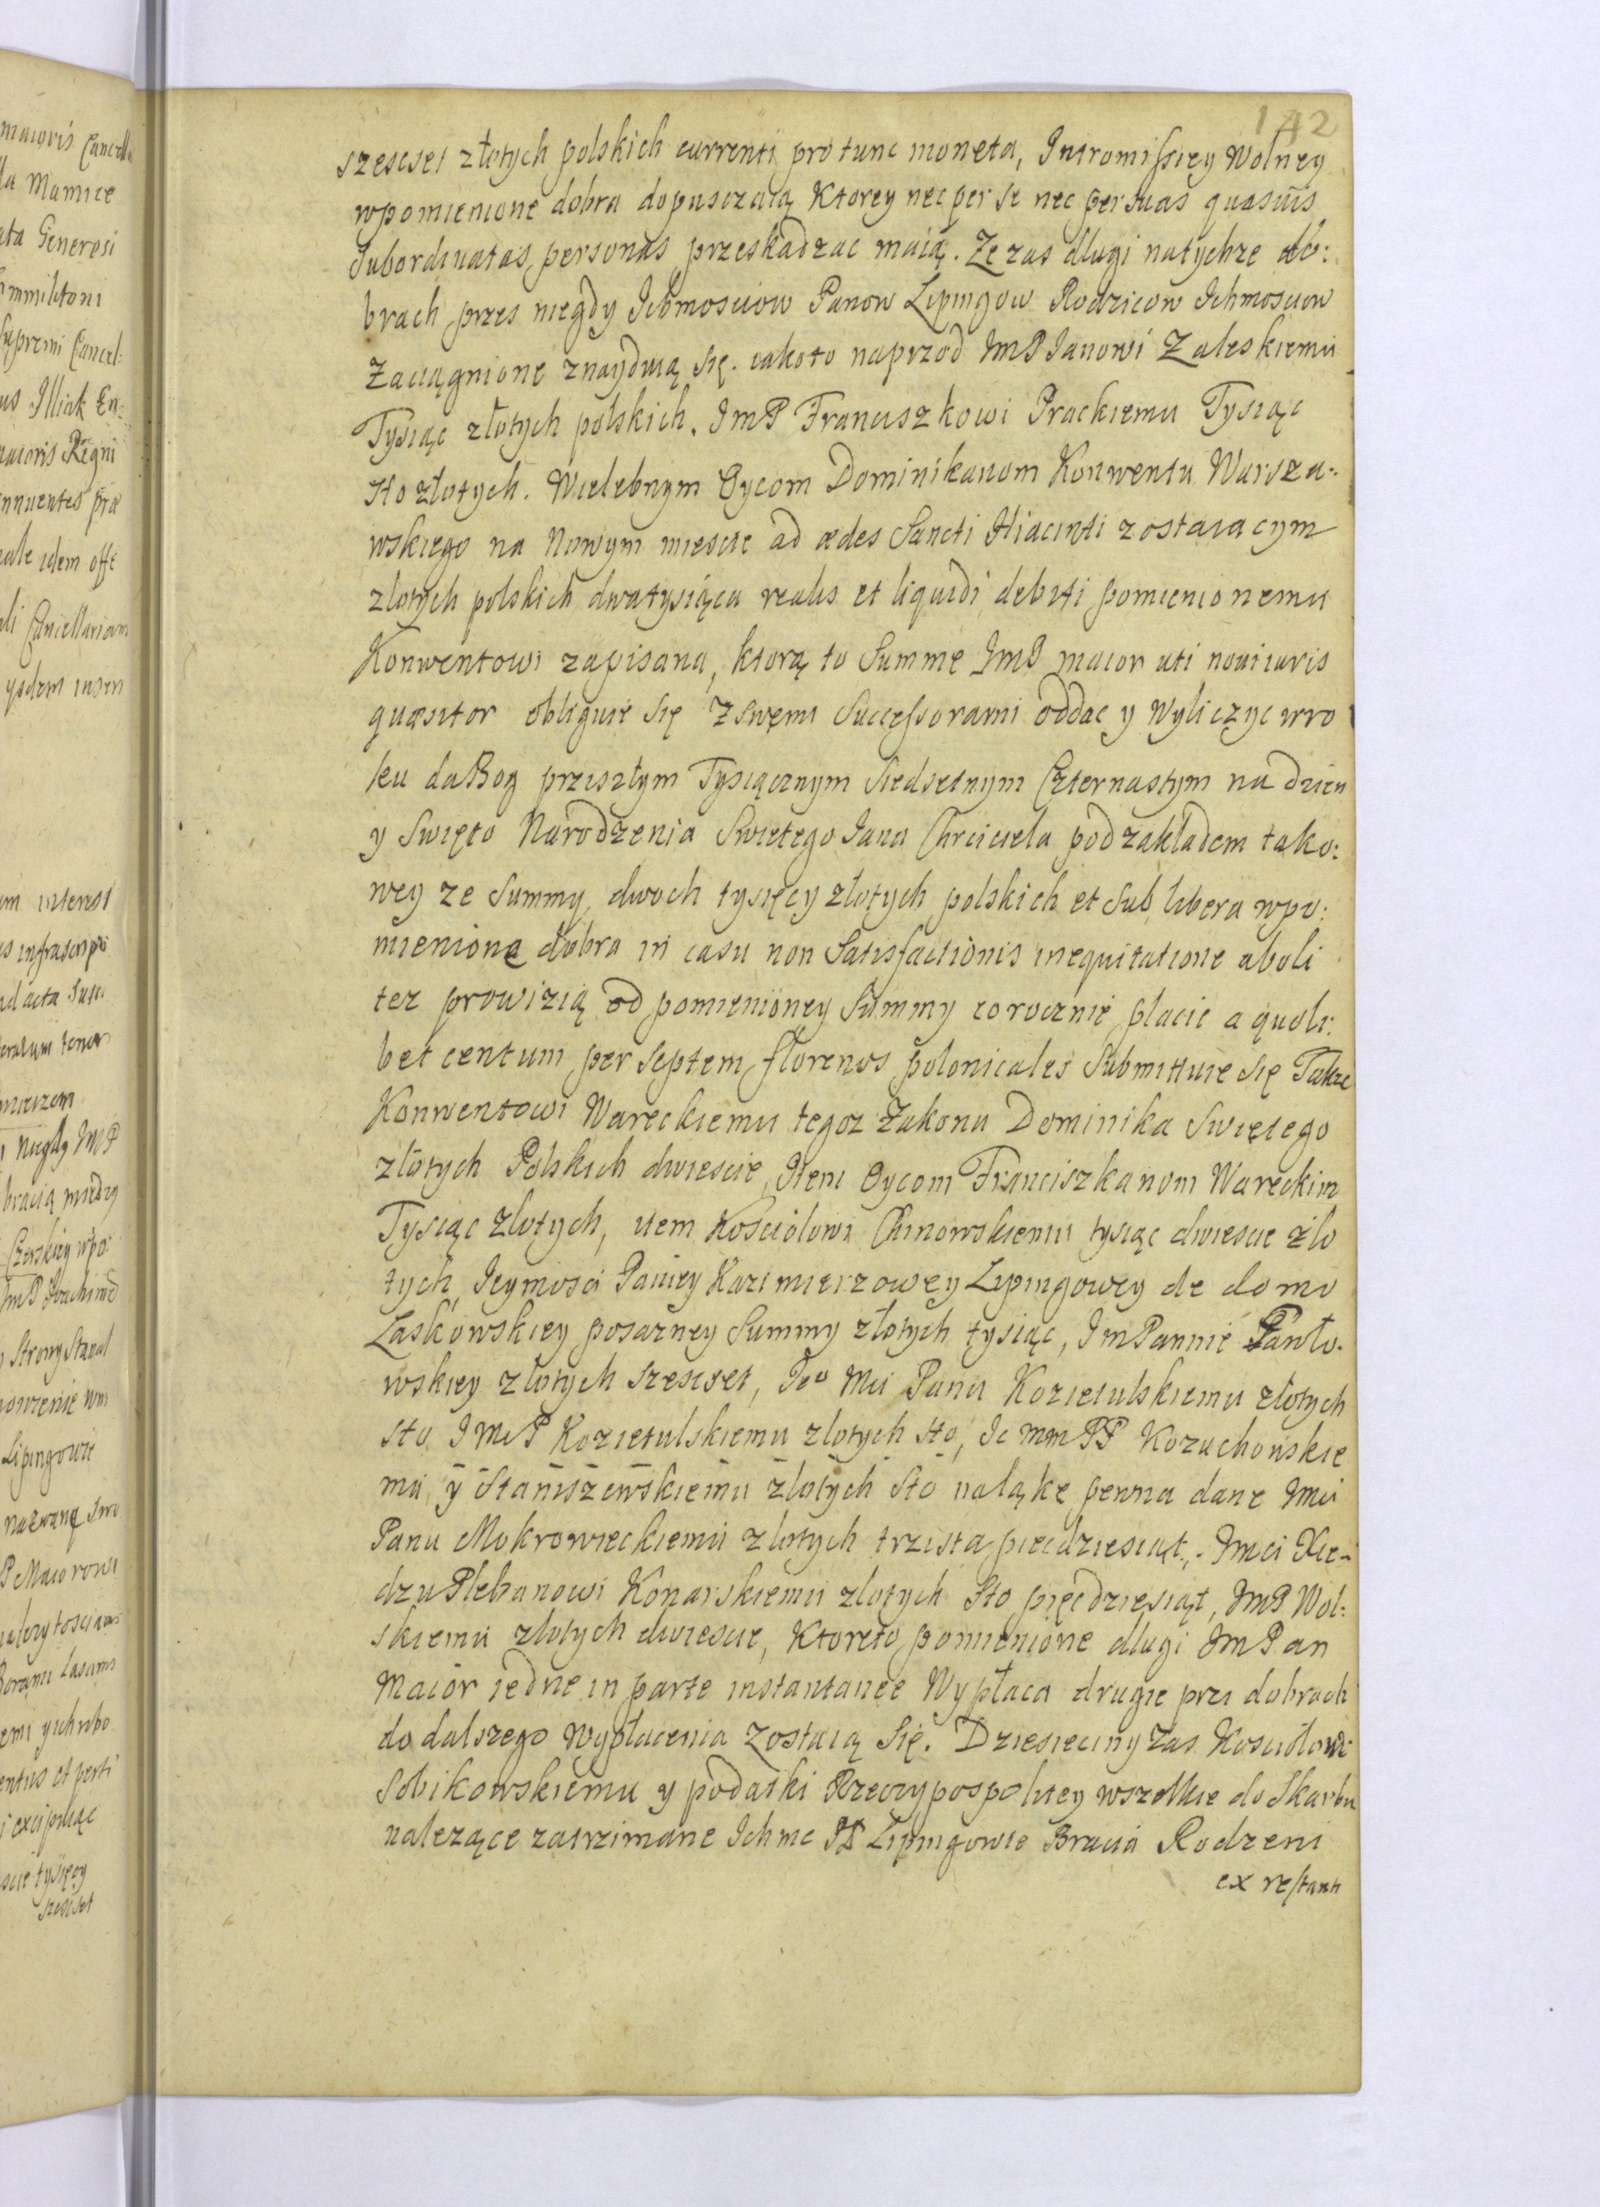 142
szescset złotych polskich currenti pro tunc moneta, Intromissiey Wolney
wpomienione dobra dopusczaią Ktorey nec per se nec per suas quasuis
Subordinatas personas przeskadzac maią. Ze zas dlugi natychze do:
brach przes niegdy Ichmosciow Panow Lipingow Rodzicow Ichmosciow
Zaciągnione znayduią się. iakoto naprzod ImP Ianowi Zaleskiemu
Tysiąc złotych polskich. ImP Franciszkowi Prackiemu Tysiąc
sto złotych. Wielebnym Oycom Dominikanom Konwentu Warsza:
wskiego na Nowym miescie ad ædes Sancti Hiacinti zostaiacym
zlotych polskich dwatysiąca realis et liquidi debiti pomienionemu
Konwentowi zapisana, ktorą to Summe ImP maior uti noui iuris
quæsitor obliguie się z swemi Successorami oddac y wyliczyc wro
ku daBog przyszłym Tysiącznym Siedsetnym Czternastym na dzien
y Swięto Narodzenia Swietego Iana Chrciciela podzakładem tako:
wey ze Summy dwoch tysięcy złotych polskich et sub libera wpo:
mienione dobra in casu non Satisfactionis inequitatione aboli
tez prowizią od pomienioney Summy corocznie placic a quoli:
bet centum per septem florenos polonicales Submittuie się Takze
Konwentowi Wareckiemu tegoz Zakonu Dominika Swięiego
złotych Polskich dwiescie, Item Oycom Franciszkanom Wareckim
Tysiąc zlotych, item Kosciolowi Chinowskiemu tysiąc dwiescie zło
tych, Ieymosci Paniey Kazimierzowey Lipingowey de domo
Laskowskiey posazney Summy złotych tysiąc, ImPannie Pawło.
wskiey zlotych szescset, Ieo Mci Panu Kozietulskiemu złotych
sto IMcP Kozietulskiemu zlotych sto, Ic mm PP Kozuchońskie
mu y Staniszewskiemu zlotych sto nałąkę pewna dane Imci
Panu Mokrowieckiemu zlotych trzista piecdziesiąt,. Imci Xie-
dzu Plebanowi Konarskiemu zlotych sto pięcdziesiąt, ImP Wol:
skiemu zlotych dwiescie, Ktoreto pomienione dlugi ImPan
Maior iedne in parte instantanee Wypłaca drugie przi dobrach
do dalszego wyplacenia zostaią się. Dziesieciny zas Kosciolowi
Sobikowskiemu y podatki Rzeczypospolitey wszelkie do Skarbu
nalezące zatrzimane Ichmc PP Lipingowie Bracia Rodzeni
ex restanti